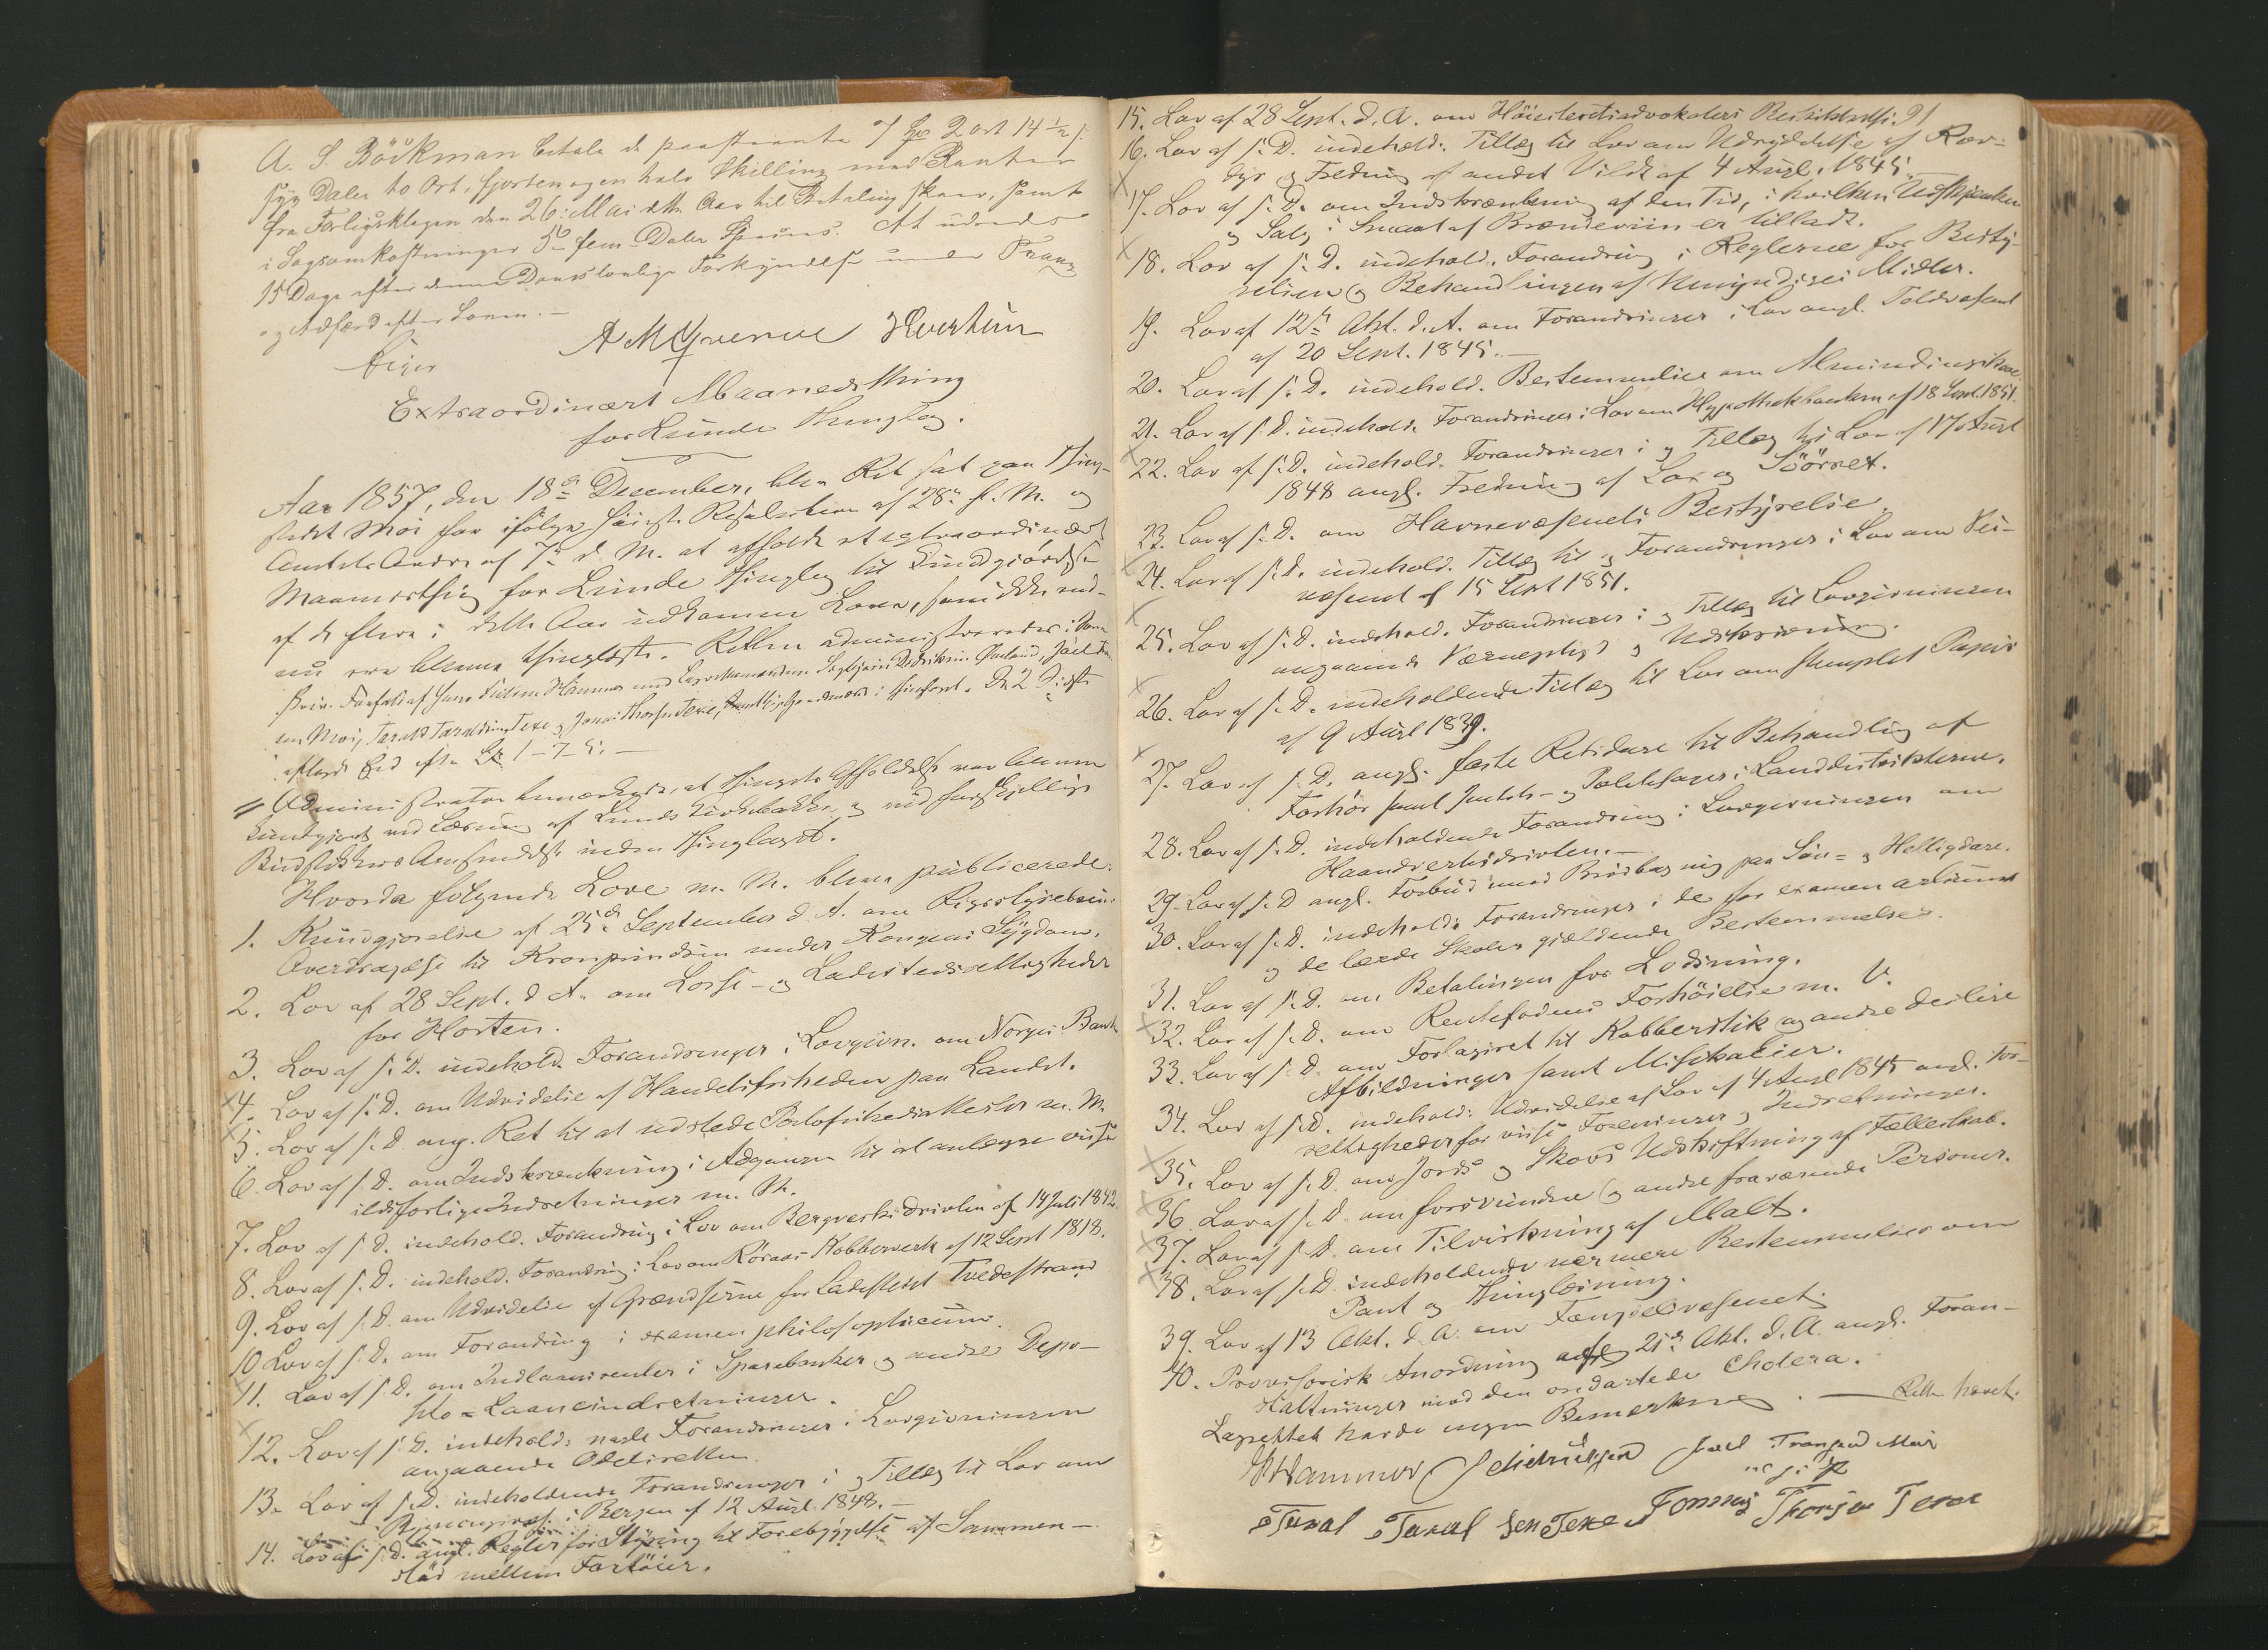 A. S. Böckman betale de paastevnte 7 Spd 2 ort 14 1/2 s.
syv Daler to Ort, fjorten og en halv Skilling med Renter
fra Forligsklagen den 26 Mai dette Aar til Betaling skeer, samt
i Sagsomkostninger 5 fem Daler Species. At udredes
15 Dage efter denne Doms lovlige Forkyndelse under
og Adfærd efter Loven. –
A M Qvenne
Extraordinært Maanedsthing
for Lunde Thinglag.
Aar 1857, den 18de December, blev Ret sat paa Thing-
stedet Moi for ifølge høieste Resolution af 28de f. M. og
Amtets Ordre af 7de d. M. at afholde et extraordinært
Maanedsthing for Lunde Thinglag til Kundgjørelse
af de flere i dette Aar udkomne Love, som ikke end-
nu ere blevne thinglæste. Retten administreredes i Soren-
skriv. Forfald af hans Fuldm. Hammer med Laugrettesmændene
en Moi, Tarald Taraldsen Texe og Jonas Thorsen Texe, De 2 Sidste
aflagde Eed efter L. 1-7-5. –
Administrator bemærkede, at Thingets Afholdelse var bleven
kundgjort ved Læsning af Lunds Kirkebakke, og ved forskjellige
Budstikkers Omsendelse inden Thinglaget.
Hvorda følgende Love m. M. bleve publicerede:
1. Kundgjørelse af 25de September d. A. om Rigsstyrelsens
Overdragelse til Kronprindsen under Kongens Sygdom.
2. Lov af 28 Sept. d. A. om Losse- og Ladestedsrettigheder
for Horten.
3. Lov af s. D. indehold. Forandringer i Lovgivn. om Norges Bank
4. Lov af s. D. om Udvidelse af Handelsfriheden paa Landet.
5. Lov af s. D. ang. Ret til at udstede Portofrihedsattester m. M.
6. Lov af s. D. om Indskrænkning i Adgangen til at anlægge visse
ildsfarlige Indretninger m. M.
7. Lov af s. D. indehold. Forandring i Lov om Bergverksdriften af 14 Juli 1842
8. Lov af s. D. indehold. Forandring i Lov om Röraas Kobberverk af 12 Sept 1818.
9. Lov af s. D. om Udvidelse af Grændserne for Ladestedet Tvedestrand
10 Lov af s. D. om Forandring i examen philosophicum.
11. Lov af s. D. om Indlaansrenter i Sparebanker og andre Depo-
sito- Laaneindretninger.
12. Lov af s. D. indehold. nogle Forandringer i Lovgivningen
angaaende Odelsretten.
13. Lov af s. D. indeholdende Forandringer i og Tillæg til Lov om
i Bergen af 12 Augt 1848. –
14. Lov af s. D. angl. Regler for Styring til Forebyggelse af Sammen-
stød mellem Fartöier.
15. Lov af 28 Sept. d. A. om Höiesteretsadvokaters Beskikkelse. 91
16. Lov af s. D. indehold. Tillæg til Lov om Udryddelse af Rov-
dyr og Fredning af andet Vildt af 4 Augt. 1845.
17. Lov af s. D. om Indskrænkning af den Tid, i hvilken Udskjænken
og Salg i Smaat af Brændeviin er tilladt.
18. Lov af s. D. indehold. Forandring i Reglerne for Besty-
relsen og Behandlingen af Umyndiges Midler.
19. Lov af 12te Okt. d. A. om Forandringer i Lov angl. Toldvæsenet
af 20 Sept. 1845. –
20. Lov af s. D. indehold. Bestemmelse om Almindingsskove
21. Lov af s. D. indehold. Forandringer i Lov om Hypothekbanken af 18 Sept. 1851.
22. Lov af s. D. indehold. Forandringer i og Tillæg til Lov af 17 Augt
1848 angl. Fredning af Lax og Søörret.
23. Lov af s. D. om Havnevæsenets Bestyrelse.
24. Lov af s. D. indehold. Tillæg til og Forandringer i Lov om Vei-
væsenet af 15 Sept 1851.
25. Lov af s. D. indehold. Forandringer i og Tillæg til Lovgivningen
angaaende Værnepligt og Udskrivning.
26. Lov af s. D. indeholdende Tillæg til Lov om stemplet Papir
af 9 Augt 1839.
27. Lov af s. D. angl. faste Retsdage til Behandling af
Forhör samt Justits- og Politisager i Landdistrikterne.
28. Lov af s. D. indeholdende Forandring i Lovgivningen om
Haandverksdriften. –
29. Lov af s. D angl. Forbud mod Brødbagning paa Søn- og Helligdage.
30. Lov af s. D. indehold. Forandringer i de for examen artium
og de lærde Skoler gjældende Bestemmelser.
31. Lov af s. D. om Betalingen for Lodsning.
32. Lov af s. D. om Rentefodens Forhöielse m. V.
33. Lov af s. D. om Forlagsret til Kobberstik og andre deslige
Afbildninger samt Musikalier.
34. Lov af s. D. indehold. Udvidelse af Lov af 4 Augt 1845 angl. For-
rettigheder for visse Foreninger og Indretninger.
35. Lov af s. D. om Jords og Skovs Udskiftning af Fællesskab.
36. Lov af s. D. om forsvundne og andre fraværende Personer.
37. Lov af s. D. om Tilvirkning af Malt.
38. Lov af s. D. indeholdende nærmere Bestemmelser om
Pant og Thinglæsning.
39. Lov af 13 Okt. d. A. om Fængselsvæsenet.
40. Provisorisk Anordning af 21de Okt. d. A. angl. Foran-
staltninger mod den ondartede Cholera.
Lagrettet havde ingen Bemærkning. – Retten hævet.
Hammer
Taral Taralsen Texe Jonas Thorsen Texe